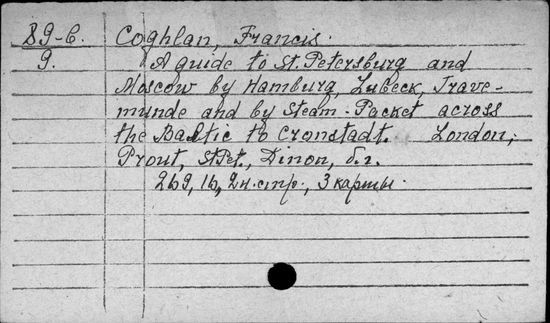 89-б. Coghlan, Francis.
9. A guide to St. Petersburg and
Moscow by Hamburg, Lubeck, Trave-
munde and by Steam-Packet across
the Baltic to Cronstadt. London,
Prout, St Pet., Dinon, б.г.
269, 16, 2н. стр., 3 карты.